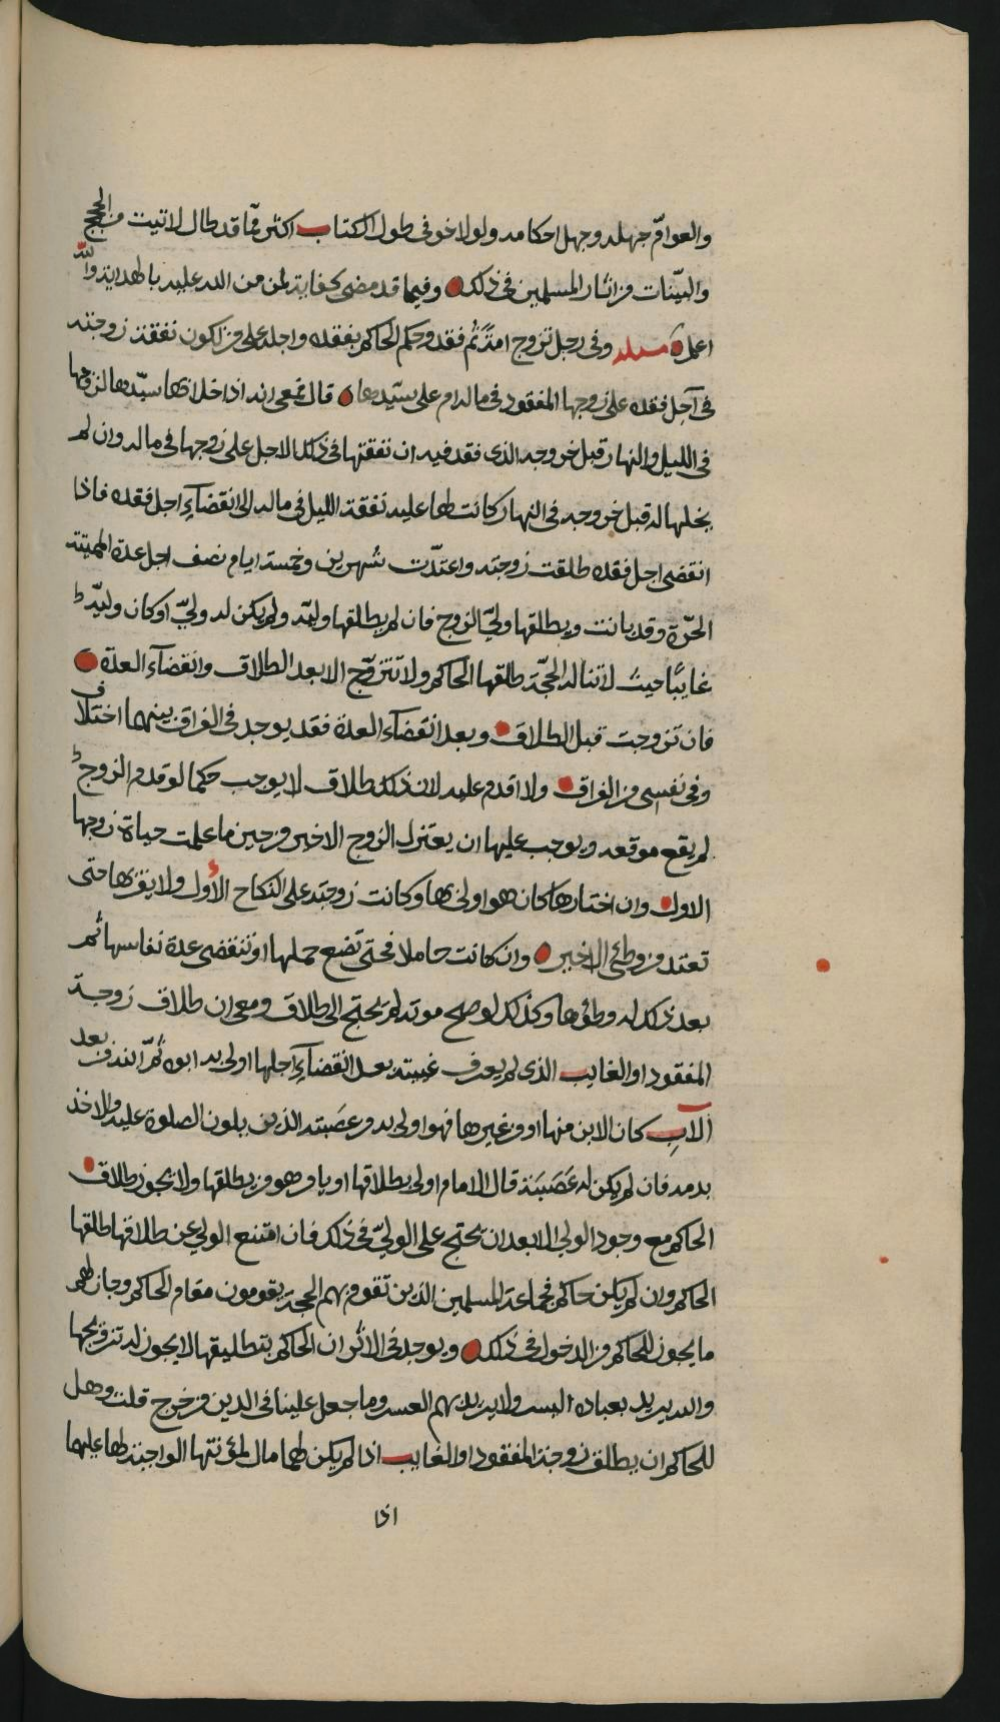 والعوامّ جهله وجهل احكامه ولولا خوفى طول الكتاب اكثر مما قد طال لاتيت من الحجج
والبيّنات من اثار المسلمين فى ذلك وفيما قد مضى كفاية لمن من الله عليه بالهداية والله
اعلم مسئله وفى رجل تزوج امَةً ثم فقد وحكم الحاكم بفقده واجله على من تكون نفقة زوجته
فى اجل فقده على زوجها المفقود فى ماله ام على سيّدها قال معى انه اذا خلا بها سيّدها لزوجها
فى الليل والنهار قبل خروجه الذى فقد فيه ان نفقتها فى ذلك الاجل على زوجها فى ماله وان لم
يخلها له قبل خروجه فى النهار كانت لها عليه نفقة الليل فى ماله الى انقضآء اجل فقده فاذا
انقضى اجل فقده طلقت زوجته واعتدّت شهرين وخمسة ايام نصف اجل عدة المميتة
الحرّة وقد بانت ويطلقها وليّ الزوج فان لم يطلقها وليّه ولم يكن له وليّ او كان وليّه
غايبًا حيث لا تناله الحجّة طلقها الحاكم ولا تتزوّج الا بعد الطلاق وانقضآء العدة
فان تزوجت قبل الطلاق وبعد انقضآء العدة فقد يوجد فى الفراق بينهما اختلاف
وفى نفسى من الفراق ولا اقدم عليه لان ذلك طلاق لا يوجب حكما لو قدم الزوج
لم يقع موقعه ويوجب عليها ان يعتزل الزوج الاخير من حين ما علمت حياة زوجها
الاول وان اختارها كان هو اولى بها وكانت زوجته على النكاح الأول ولا يقربها حتى
تعتد من وطئ الاخير وان كانت حاملا فحتى تضع حملها او تنقضى عدة نفاسها ثم
بعد ذلك له وطؤها وكذلك لو صح موته لم يحتج الى طلاق ومعى ان طلاق زوجة
المفقود او الغايب الذى لم يعرف غيبته بعد انقضآء اجلها اولى به ابوه ثمّ الذى من بعد
الاب كان الابن منها او من غيرها فهو اولى به من عصَبته الذين يلون الصلوة عليه والاخذ
بدمه فان لم يكن له عَصَبَة قال الامام اولى بطلاقها او يامر هو من يطلقها ولا يجوز طلاق
الحاكم مع وجود الولي الا بعد ان يحتج على الوليّ فى ذلك فان امتنع الولي عن طلاقها طلقها
الحاكم وان لم يكن حاكم فجماعة المسلمين الذين تقوم بهم الحجة يقومون مقام الحاكم وجاز لهم
ما يجوز للحاكم من الدخول فى ذلك ويوجد فى الاثر ان الحاكم بتطليقها لا يجوز له تزويجها
والله يريد بعباده اليسر ولا يريد بهم العسر وما جعل علينا فى الدين من حرج قلت وهل
للحاكم ان يطلق زوجة المفقود او الغايب اذا لم يكن لهما مال لمؤنتها الواجبة لها عليهما
اذا